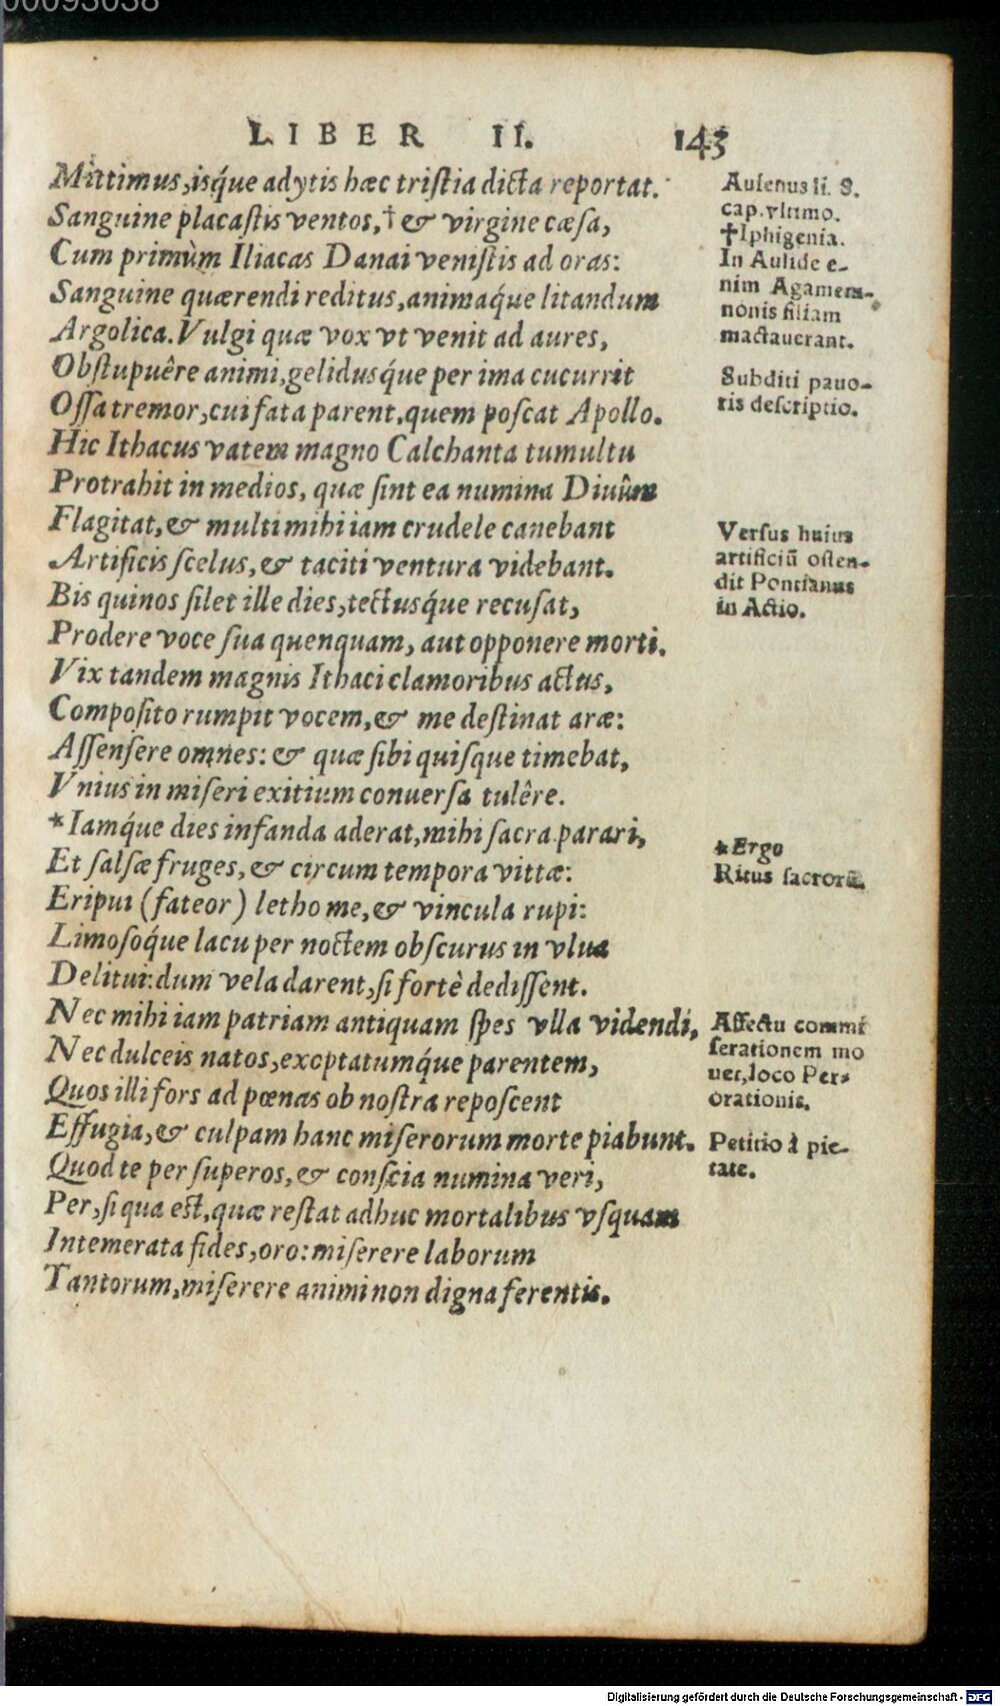 00093038
LIBER II. 143
Mittimus, isq́ue adytis hæc tristia dicta reportat.
Sanguine placastis ventos, † & virgine cæsa,
Cum primùm Iliacas Danai venistis ad oras:
Sanguine quærendi reditus, animaq́ue litandum
Argolica. Vulgi quæ vox vt venit ad aures,
Obstupuêre animi, gelidusq́ue per ima cucurrit
Ossa tremor, cui fata parent, quem poscat Apollo.
Hic Ithacus vatem magno Calchanta tumultu
Protrahit in medios, quæ sint ea numina Diuûm
Flagitat, & multi mihi iam crudele canebant
Artificis scelus, & taciti ventura videbant.
Bis quinos silet ille dies, tectusq́ue recusat,
Prodere voce sua quenquam, aut opponere morti.
Vix tandem magnis Ithaci clamoribus actus,
Composito rumpit vocem, & me destinat aræ:
Assensere omnes: & quæ sibi quisque timebat,
Vnius in miseri exitium conuersa tulêre.
*Iamq́ue dies infanda aderat, mihi sacra parari,
Et salsæ fruges, & circum tempora vittæ:
Eripui (fateor) letho me, & vincula rupi:
Limosoq́ue lacu per noctem obscurus in vlua
Delitui: dum vela darent, si fortè dedissent.
Nec mihi iam patriam antiquam spes vlla videndi,
Nec dulceis natos, exoptatumq́ue parentem,
Quos illi fors ad pœnas ob nostra reposcent
Effugia, & culpam hanc miserorum morte piabunt.
Quod te per superos, & conscia numina veri,
Per, si qua est, quæ restat adhuc mortalibus vsquam
Intemerata fides, oro: miserere laborum
Tantorum, miserere animi non digna ferentis.
Ausenus li. 8.
cap. vltimo.
†Iphigenia.
In Aulide e-
nim Agamem-
nonis filiam
mactauerant.
Subditi pauo-
ris descriptio.
Versus huius
artificiū osten-
dit Pontanus
in Actio.
*Ergo
Ritus sacrorū.
Affectu commi
serationem mo
uet, loco Per-
orationis.
Petitio à pie-
tate.
Digitalisierung gefördert durch die Deutsche Forschungsgemeinschaft - DFG